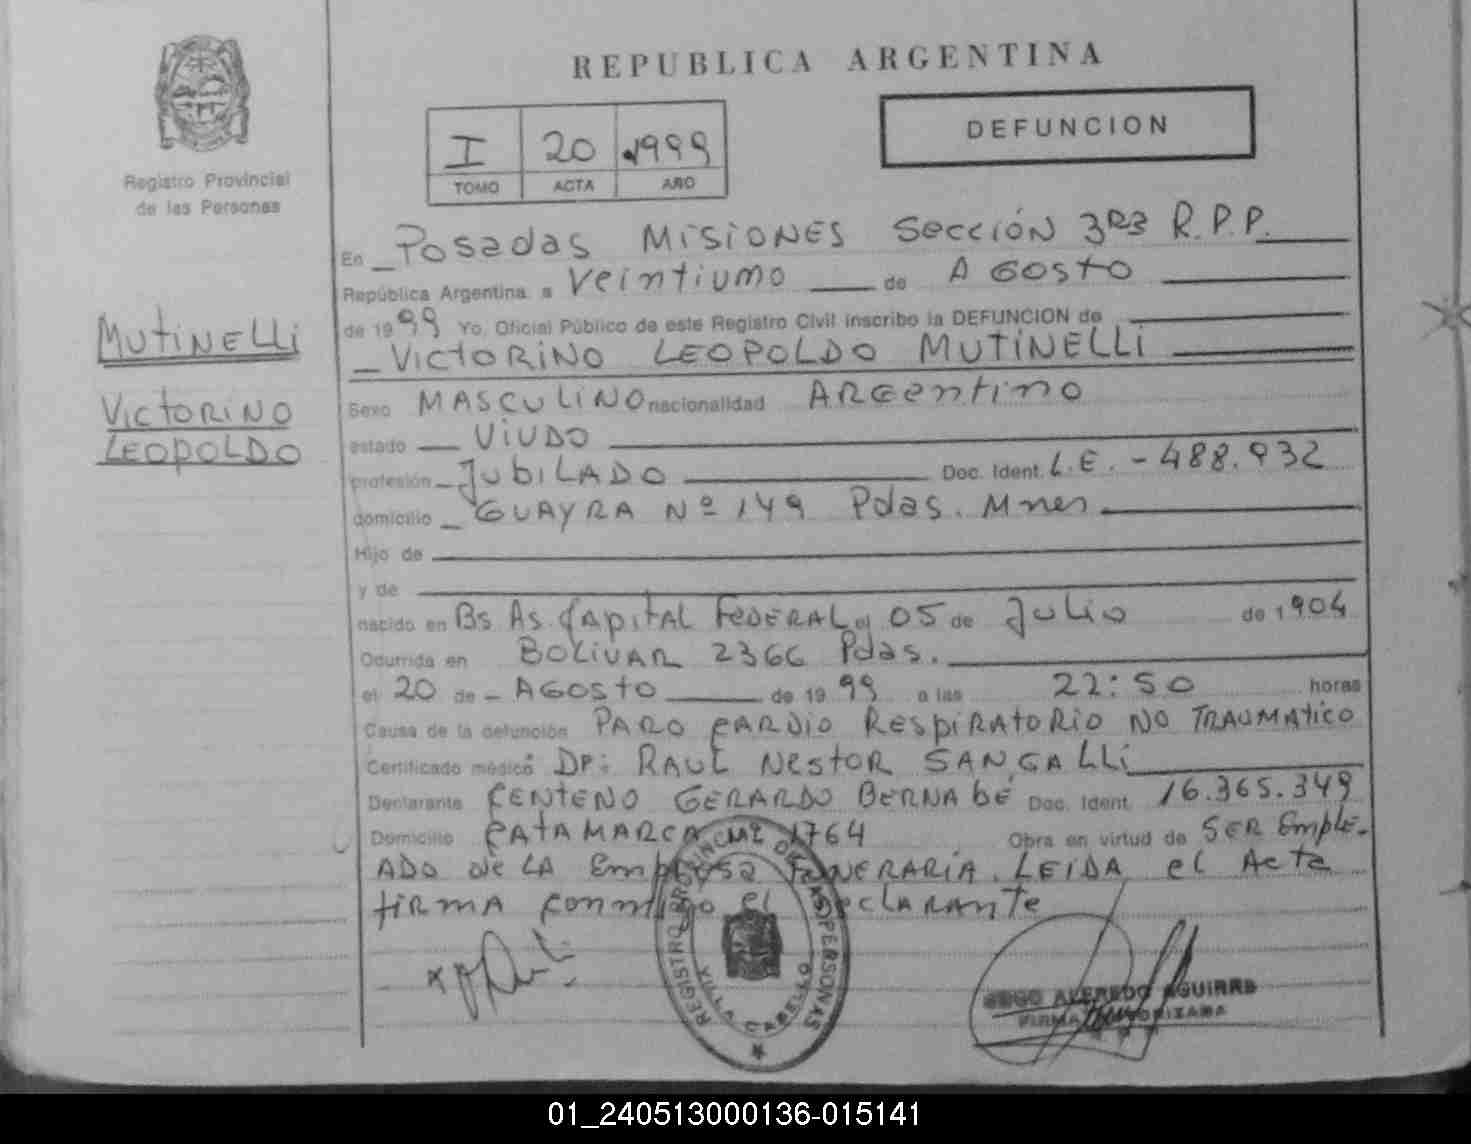 REPUBLICA ARGENTINA
DEFUNCION
I 20 1999
TOMO ACTA AÑO
Registro Provincial
de las Personas
MUTINELLI
VICTORINO
LEOPOLDO
En Posadas MISIONES Sección 3ra R.P.P.
República Argentina a Veintiuno de AGosto
de 1999 Yo, Oficial Público de este Registro Civil inscribo la DEFUNCION de
VICTORINO LEOPOLDO MUTINELLI
Sexo MASCULINO nacionalidad ARGentino
estado VIUDO
profesión JUBILADO Doc. Ident. L.E. - 488.932
domicilio GUAYRA Nº 149 Pdas. Mnes
Hijo de
y de
nacido en Bs As. Capital FEDERAL el 05 de Julio de 1904
Ocurrida en BOLIVAR 2366 Pdas.
el 20 de AGOSTO de 1999 a las 22:50 horas
Causa de la defunción PARO CARDIO RESPIRATORIO NO TRAUMATICO
Certificado médico DR: RAUL NESTOR SANGALLI
Declarante CENTENO GERARDO BERNABÉ Doc. Ident. 16.365.349
Domicilio CATAMARCA Nº 1764 Obra en virtud de SER EmplE-
ADO de LA Empresa FUNERARIA. LEIDA el Acta
firma conmigo el DECLARANTE
REGISTRO PROVINCIAL DE LAS PERSONAS
VILLA CABELLO
ALFREDO AGUIRRE
FIRMA AUTORIZADA
01_240513000136-015141